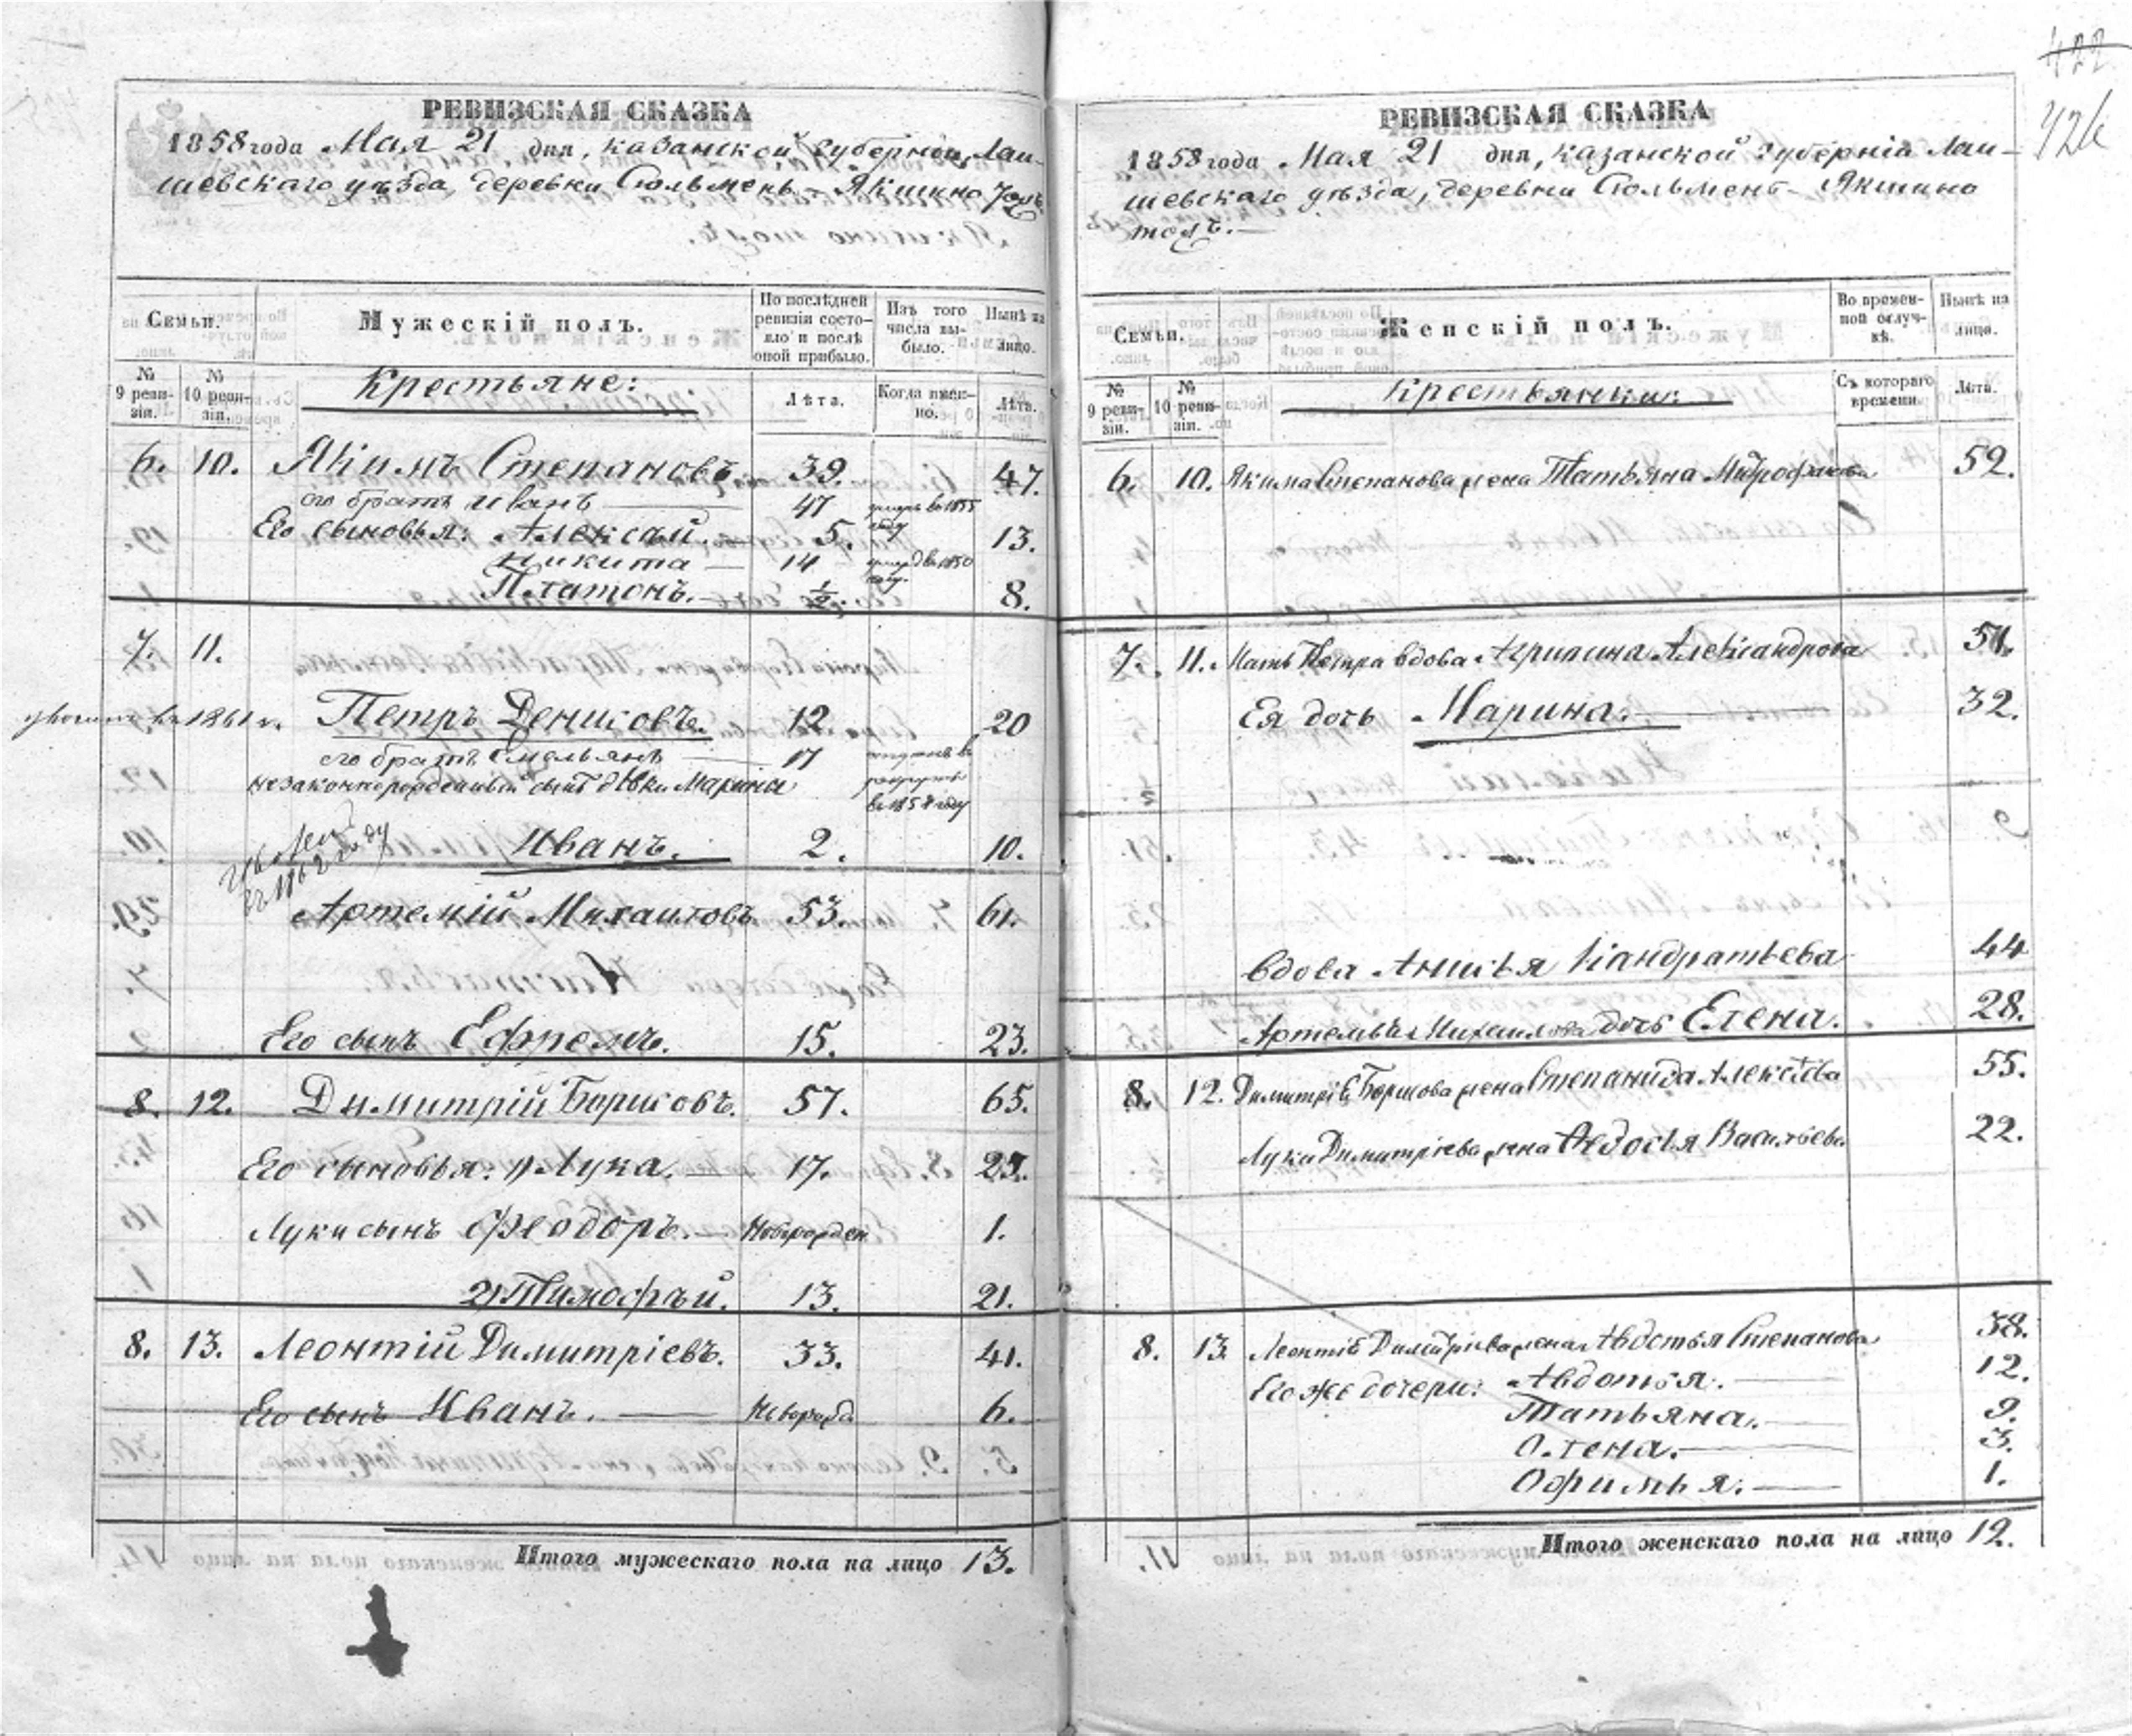 422
424
РЕВИЗСКАЯ СКАЗКА
1858 года Мая 21 дня, казанской Губерніи, Лаи-
шевскаго уѣзда, деревни Сюльмень-Якшино
Семьи.
Мужескій полъ.
По послѣдней ревизіи состо-
яло и послѣ
оной прибыло.
Изъ того
числа вы-
было.
Нынѣ на
лицо.
№
9 реви-
зіи.
№
10 реви-
зіи.
Крестьяне:
Лѣта.
Когда имен-
но.
Лѣта.
6. 10. Якимъ Степановъ. 39. 47.
его братъ Иванъ 47 умеръ въ 1855 году
Его сыновья: Алексѣй. 5. 13.
Никита 14 въ 1850 году.
Платонъ. 1/2. 8.
7. 11.
въ 1861 г. Петръ Денисовъ. 12 20
его братъ Емельянъ 17 въ рекруты
незаконнорожденный сынъ дѣвки Марины
году
Иванъ. 2. 10.
Артемій Михаиловъ 53. 61.
Его сынъ Ефремъ. 15. 23.
8. 12. Димитрій Борисовъ. 57. 65.
Его сыновья: 1) Лука. 17. 25.
Луки сынъ Ѳеодоръ. Новорожден 1.
2) Тимофѣй. 13. 21.
8. 13. Леонтій Димитріевъ. 33. 41.
Его сынъ Иванъ. Новорожд. 6.
Итого мужескаго пола на лицо 13.
РЕВИЗСКАЯ СКАЗКА
1858 года Мая 21 дня, казанской губерніи Лаи-
шевскаго уѣзда, деревни Сюльмень-Якшино
толъ.
Семьи.
Женскій полъ.
Во времен-
ной отлуч-
кѣ.
Нынѣ на
лицо.
№
9 реви-
зіи.
№
10 реви-
зіи.
Крестьянки:
Съ котораго
времени.
Лѣта.
6. 10. Якима Степанова жена Татьяна Митрофанова 52.
7. 11. Мать Петра вдова Акрипина Александрова 51.
Ея дочь Марина. 32.
вдова Анисья Кандратьева 44
Артемья Михаилова дочь Елена. 28.
8. 12. Димитрія Борисова жена Степанида Алексѣева 55.
Луки Димитріева жена Ѳедосья Васильева 22.
8. 13. Леонтія Димитріева жена Авдотья Степанова 38.
Его же дочери: Авдотья. 12.
Татьяна. 9.
Олена. 3.
Офимья. 1.
Итого женскаго пола на лицо 12.